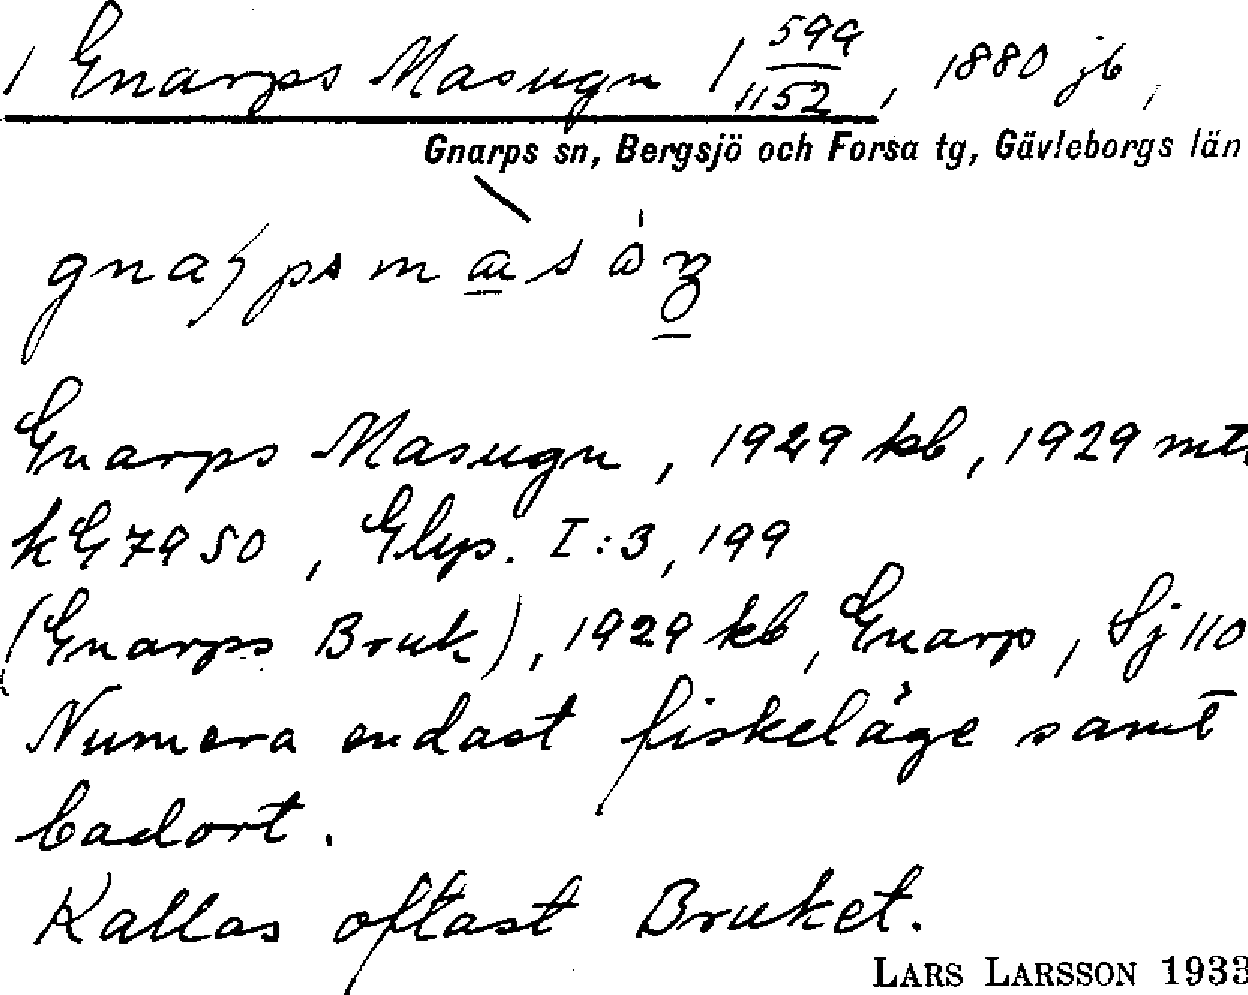 1 Gnarps Masugn 1 599/1152, 1880 jb,
Gnarps sn, Bergsjö och Forsa tg, Gävleborgs län
Gnarps Masugn, 1929 kb, 1929 mtl
kG 7950, Glys. I:3, 199
(Gnarps Bruk), 1929 kb, Gnarp, Sj 110
Numera endast fiskeläge samt
badort.
Kallas oftast Bruket.
LARS LARSSON 1933